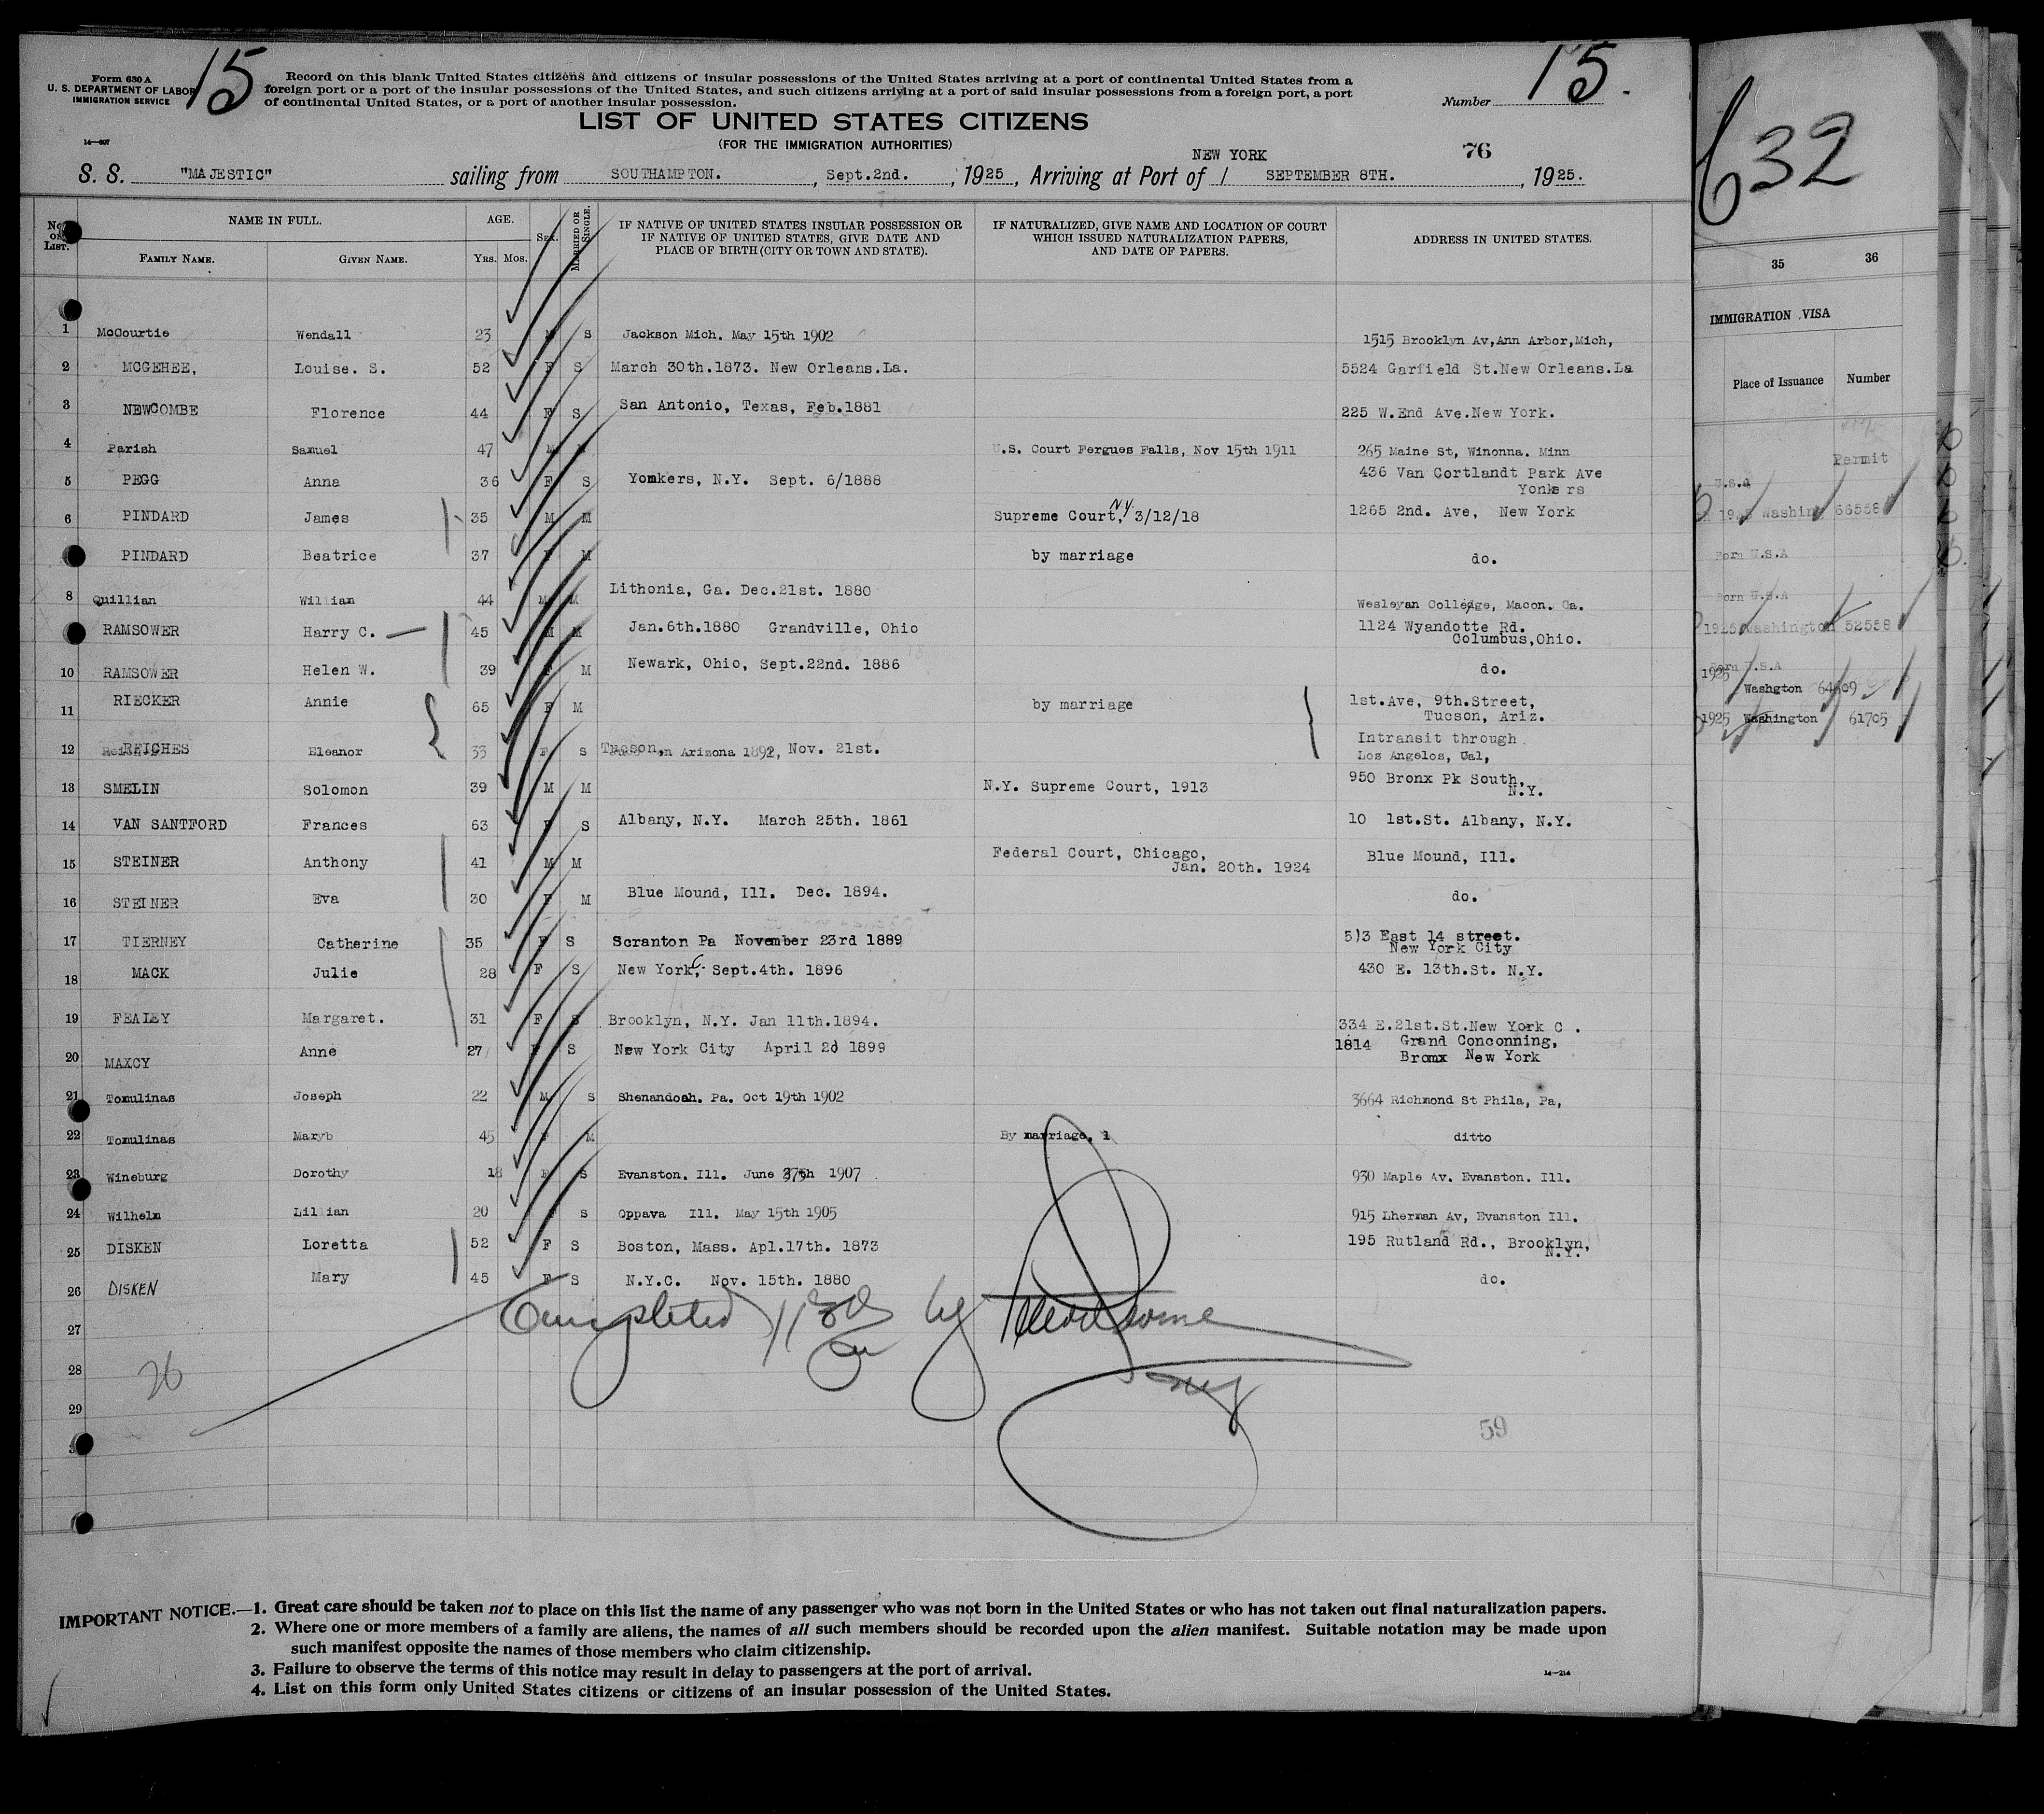 15
Form 630 A
U. S. DEPARTMENT OF LABOR
IMMIGRATION SERVICE
14—607
Record on this blank United States citizens and citizens of insular possessions of the United States arriving at a port of continental United States from a
foreign port or a port of the insular possessions of the United States, and such citizens arriving at a port of said insular possessions from a foreign port, a port
of continental United States, or a port of another insular possession.
Number 15.
LIST OF UNITED STATES CITIZENS
(FOR THE IMMIGRATION AUTHORITIES)
NEW YORK 76
S. S. "MAJESTIC" sailing from SOUTHAMPTON. , Sept.2nd. , 1925, Arriving at Port of / SEPTEMBER 8TH. , 1925.
No. on List. NAME IN FULL. AGE. SEX. MARRIED OR SINGLE. IF NATIVE OF UNITED STATES INSULAR POSSESSION OR IF NATIVE OF UNITED STATES, GIVE DATE AND PLACE OF BIRTH (CITY OR TOWN AND STATE). IF NATURALIZED, GIVE NAME AND LOCATION OF COURT WHICH ISSUED NATURALIZATION PAPERS, AND DATE OF PAPERS. ADDRESS IN UNITED STATES.
FAMILY NAME. GIVEN NAME. Yrs. Mos.
1 McCourtie Wendall 23 M S Jackson Mich. May 15th 1902 1515 Brooklyn Av,Ann Arbor,Mich,
2 MCGEHEE, Louise. S. 52 F S March 30th.1873. New Orleans.La. 5524 Garfield St.New Orleans.La
3 NEWCOMBE Florence 44 F S San Antonio, Texas, Feb.1881 225 W.End Ave.New York.
4 Parish Samuel 47 M M U.S. Court Fergues Falls, Nov 15th 1911 265 Maine St, Winonna. Minn
5 PEGG Anna 36 F S Yonkers, N.Y. Sept. 6/1888 436 Van Cortlandt Park Ave
Yonkers
6 PINDARD James 35 M M Supreme Court, N.Y. 3/12/18 1265 2nd. Ave, New York
PINDARD Beatrice 37 F M by marriage do.
8 Quillian William 44 M M Lithonia, Ga. Dec.21st. 1880 Wesleyan Colledge, Macon. Ga.
RAMSOWER Harry C. 45 M M Jan.6th.1880 Grandville, Ohio 1124 Wyandotte Rd.
Columbus,Ohio.
10 RAMSOWER Helen W. 39 F M Newark, Ohio, Sept.22nd. 1886 do.
11 RIECKER Annie 65 F M by marriage 1st.Ave, 9th.Street,
Tucson, Ariz.
12 REICHES Eleanor 33 F S Tucson, Arizona 1892, Nov. 21st. Intransit through
Los Angelos, Cal,
13 SMELIN Solomon 39 M M N.Y. Supreme Court, 1913 950 Bronx Pk South,
N.Y.
14 VAN SANTFORD Frances 63 F S Albany, N.Y. March 25th. 1861 10 1st.St. Albany, N.Y.
15 STEINER Anthony 41 M M Federal Court, Chicago,
Jan. 20th. 1924 Blue Mound, Ill.
16 STEINER Eva 30 F M Blue Mound, Ill. Dec. 1894. do.
17 TIERNEY Catherine 35 F S Scranton Pa November 23rd 1889 513 East 14 street.
New York City
18 MACK Julie 28 F S New York, C. Sept.4th. 1896 430 E. 13th.St. N.Y.
19 FEALEY Margaret. 31 F S Brooklyn, N.Y. Jan 11th.1894. 334 E.21st.St.New York C .
20 MAXCY Anne 27 F S New York City April 2d 1899 1814 Grand Conconning,
Bronx New York
21 Tomulinas Joseph 22 M S Shenandoah. Pa. Oct 19th 1902 3664 Richmond St Phila, Pa,
22 Tomulinas Maryb 45 F M By marriage. 1 ditto
23 Wineburg Dorothy 18 F S Evanston. Ill. June 27th 1907 930 Maple Av. Evanston. Ill.
24 Wilhelm Lillian 20 F S Oppava Ill. May 15th 1905 915 Lherman Av, Evanston Ill.
25 DISKEN Loretta 52 F S Boston, Mass. Apl.17th. 1873 195 Rutland Rd., Brooklyn,
N.Y.
26 DISKEN Mary 45 F S N.Y.C. Nov. 15th. 1880 do.
Completed by
27
28 26
29
59
IMPORTANT NOTICE.—1. Great care should be taken not to place on this list the name of any passenger who was not born in the United States or who has not taken out final naturalization papers.
2. Where one or more members of a family are aliens, the names of all such members should be recorded upon the alien manifest. Suitable notation may be made upon
such manifest opposite the names of those members who claim citizenship.
3. Failure to observe the terms of this notice may result in delay to passengers at the port of arrival.
4. List on this form only United States citizens or citizens of an insular possession of the United States.
14—214
632
35 36
IMMIGRATION VISA
Place of Issuance Number
Permit
U.S.A
1925 Washing 66558
Born U.S.A
Born U.S.A
1925 Washington 52558
Born U.S.A
1925
Washgton 64609
1925 Washington 61705